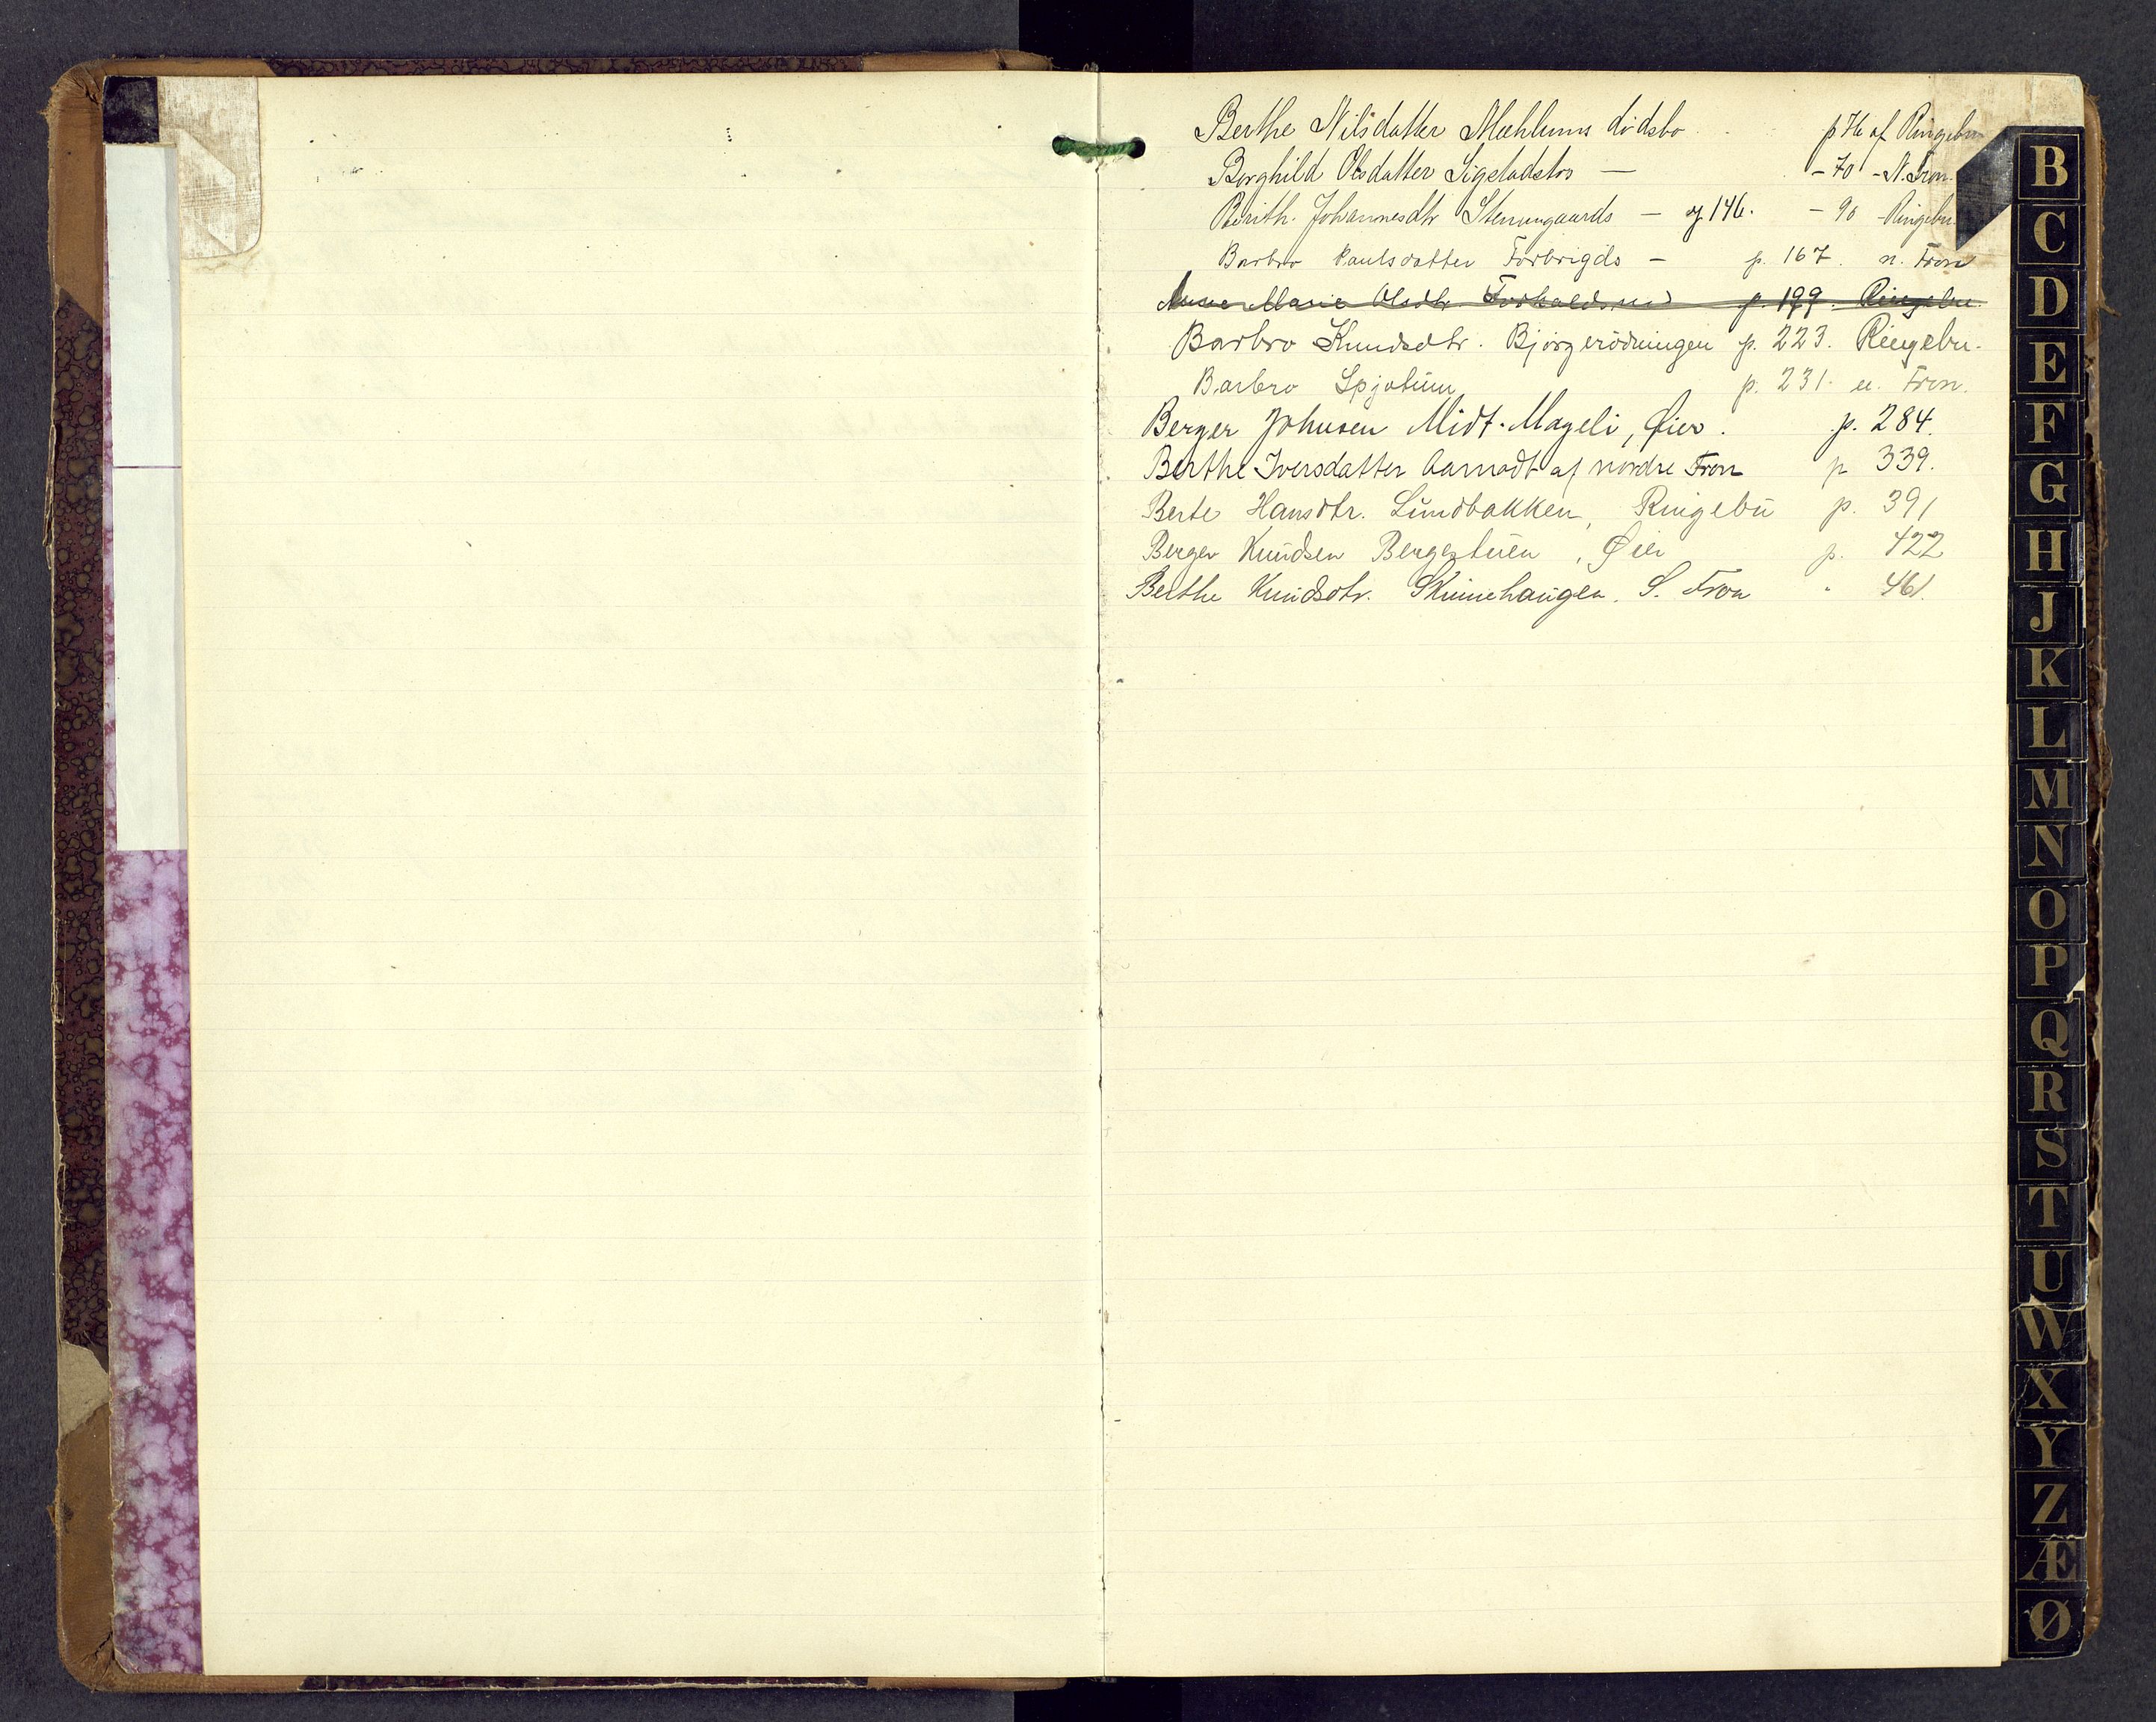 Berthe Nilsdatter Mæhlums dødsbo p 76 af Ringebu
Borghild Olsdatter Sigstadstrs — - 70 - N. Fron.
Berith. Johannesdtr Stenumgaards — og 146. - 90 - Ringebu
Barbro Paulsdatter Forbrigds — p. 167. n. Fron
Anne Marie Olsdtr. p. 199. Ringebu.
Barbro Knudsdtr. Bjørgerödningen p. 223. Ringebu.
Barbro Spjotum p. 231. n. Fron.
Berger Johnsen Midt-Mageli, Øier. p. 284.
Berthe Iversdatter Aarnodt af nordre Fron p 339.
Berte Hansdtr. Lundbakken, Ringebu p. 391
Berger Knudsen Bergestuen, Øier p. 422
Berthe Knudsdtr. Skinnehaugen. S. Fron " 461.
B
C
D
E
F
G
H
J
K
L
M
N
O
P
Q
R
S
T
U
W
X
Y
Z
Æ
Ø